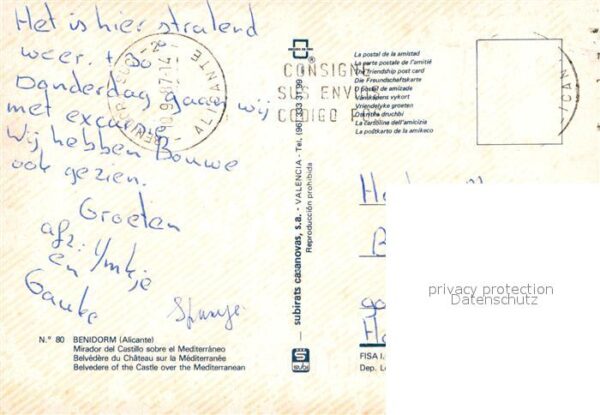 Het is hier stralend
weer. + 30
Donderdag gaan wij
met excursie
Wij hebben Bouwe
ook gezien.
Groeten
afz: Ymkje
en
Sauke
Spanje
BENIDORM
ALICANTE
CONSIGNE
SUS ENVI
CODIGO P
La postal de la amistad
La carte postale de l'amitié
The friendship post card
Die Freundschaftskarte
O postal de amizade
Vänskapens vykort
Vriendelyke groeten
La cartolina dell'amicizia
La poŝtkarto de la amikeco
subirats casanovas, s.a. - VALENCIA - Tel. (96) 333 31 99
Reproducción prohibida
subi
N.º 80 BENIDORM (Alicante)
Mirador del Castillo sobre el Mediterráneo
Belvédère du Château sur la Méditerranée
Belvedere of the Castle over the Mediterranean
FISA I.
Dep. L
privacy protection
Datenschutz